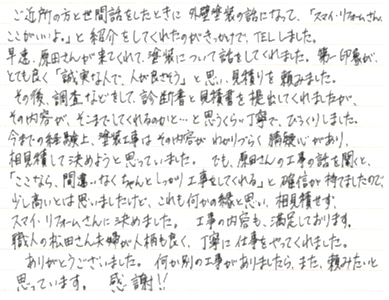 ご近所の方と世間話をしたときに外壁塗装の話になって、「スマイ・リフォームさん、
ここがいいよ。」と紹介をしてくれたのがきっかけで、TELしました。
早速、原田さんが来てくれて、塗装について話をしてくれました。第一印象が、
とても良く「誠実な人で、人が良さそう。」と思い、見積りを頼みました。
その後、調査などをして、診断書と見積書を提出してくれましたが、
その内容が、そこまでしてくれるのかと…と思うくらい丁寧で、びっくりしました。
今までの経験上、塗装工事はその内容がわかりづらく猜疑心があり、
相見積して決めようと思っていました。でも、原田さんの工事の話を聞くと、
「ここなら、間違いなくちゃんとしっかり工事をしてくれる」と確信が持てましたので、
少し高いとは思いましたけど、これも何かの縁と思い、相見積せず、
スマイ・リフォームさんに決めました。工事の内容も、満足しております。
職人の松田さん夫婦が人柄も良く、丁寧に仕事をやってくれました。
ありがとうございました。何か別の工事がありましたら、また、頼みたいと
思っています。感謝!!